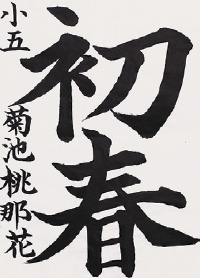 初春
小五 菊池桃那花